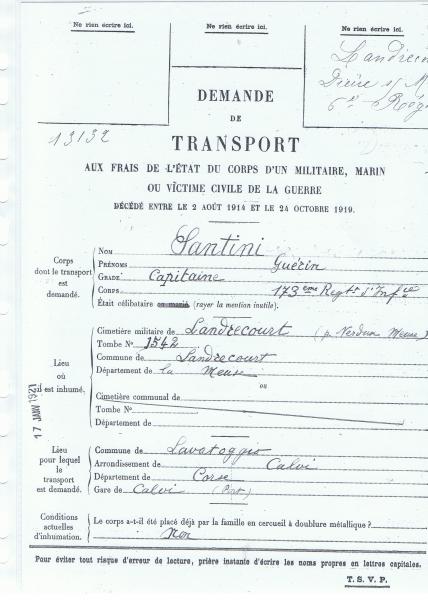 Ne rien écrire ici.
Ne rien écrire ici.
Ne rien écrire ici.
13132
DEMANDE
DE
TRANSPORT
AUX FRAIS DE L'ÉTAT DU CORPS D'UN MILITAIRE, MARIN
OU VICTIME CIVILE DE LA GUERRE
DÉCÉDÉ ENTRE LE 2 AOÛT 1914 ET LE 24 OCTOBRE 1919.
Corps dont le transport est demandé.
NOM Santini
PRÉNOMS Guérin
GRADE Capitaine
CORPS 173eme Regt d'Infie
Était célibataire ou marié (rayer la mention inutile).
17 JANV 1921
Lieu où il est inhumé.
Cimetière militaire de Landrecourt (p. Verdun Meuse)
Tombe No 1542
Commune de Landrecourt
Département de la Meuse
ou
Cimetière communal de
Tombe No
Département de
Lieu pour lequel le transport est demandé.
Commune de Lavatoggio
Arrondissement de Calvi
Département de Corse
Gare de Calvi (Port)
Conditions actuelles d'inhumation.
Le corps a-t-il été placé déjà par la famille en cercueil à doublure métallique ?
Non
Pour éviter tout risque d'erreur de lecture, prière instante d'écrire les noms propres en lettres capitales.
T. S. V. P.